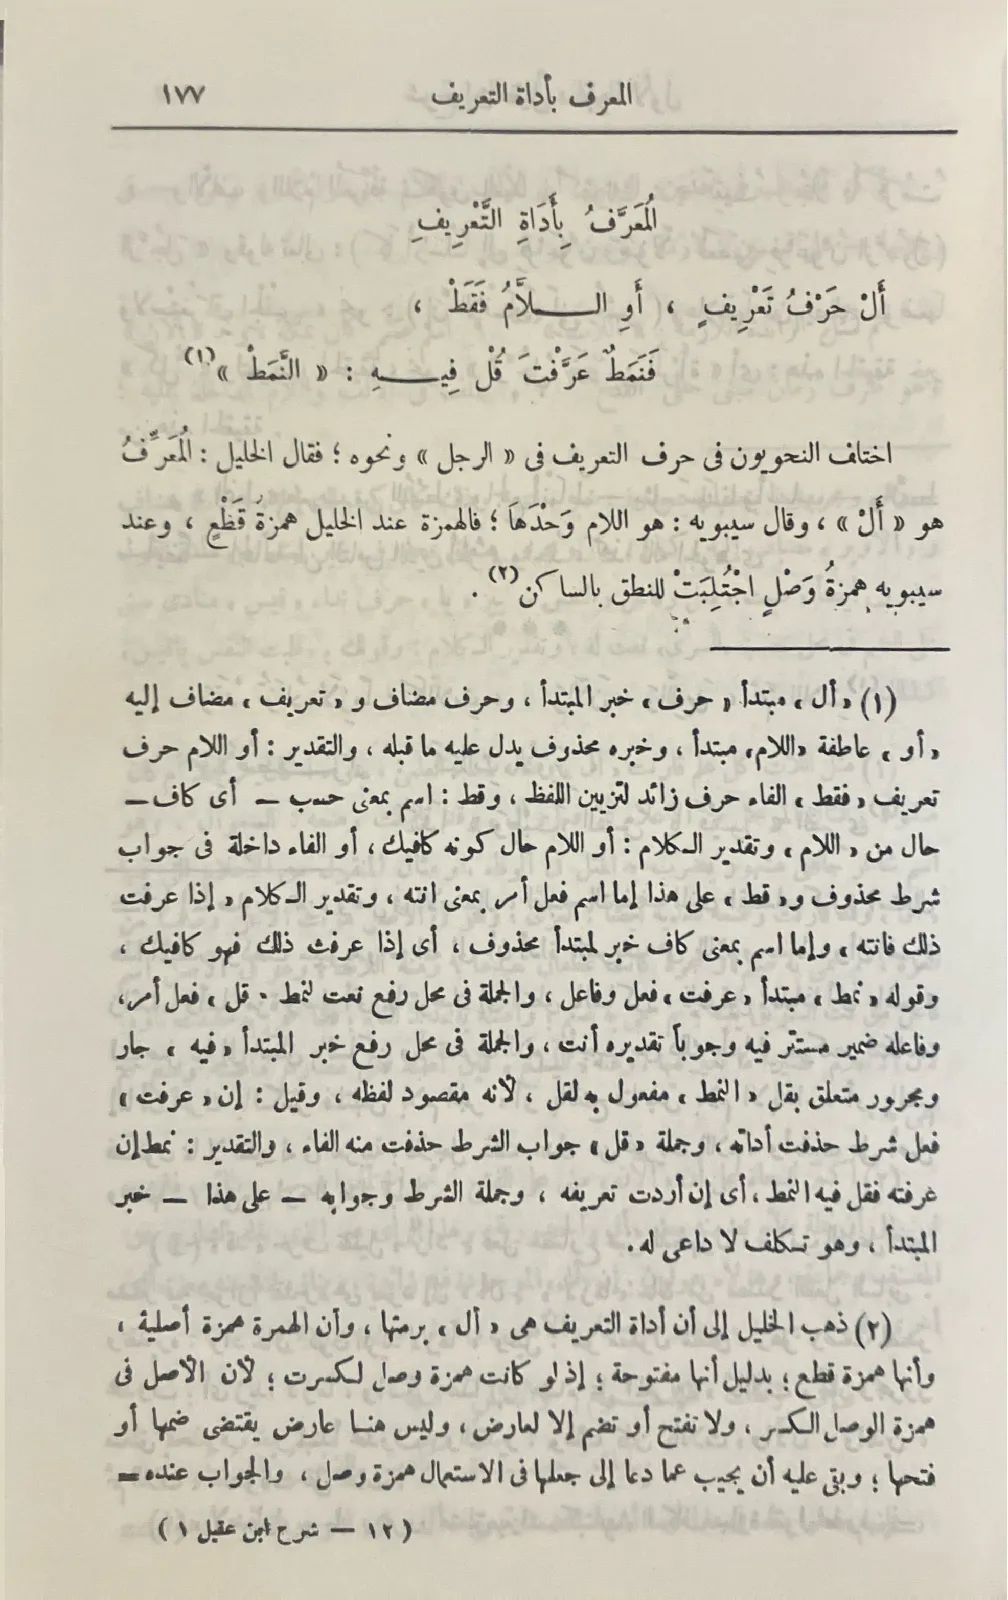 المعرف بأداة التعريف ١٧٧
الْمُعَرَّفُ بِأَدَاةِ التَّعْرِيفِ
أَلْ حَرْفُ تَعْرِيفٍ ، أَوِ الــلاَّمُ فَقَطْ ،
فَنَمَطٌ عَرَّفْتَ قُلْ فِيــهِ : « النَّمَطْ »(١)
اختلف النحويون فى حرف التعريف فى « الرجل » ونحوه ؛ فقال الخليل : الْمُعَرِّفُ
هو « أَلْ » ، وقال سيبويه : هو اللام وَحْدَهَا ؛ فالهمزة عند الخليل همزةُ قَطْعٍ ، وعند
سيبويه همزةُ وَصْلٍ اجْتُلِبَتْ للنطق بالساكن(٢) .
(١) « أل » مبتدأ « حرف » خبر المبتدأ ، وحرف مضاف و « تعريف » مضاف إليه
« أو » عاطفة « اللام » مبتدأ ، وخبره محذوف يدل عليه ما قبله ، والتقدير : أو اللام حرف
تعريف « فقط » الفاء حرف زائد لتزيين اللفظ ، وقط : اسم بمعنى حسب — أى كاف —
حال من « اللام » وتقدير الكلام : أو اللام حال كونه كافيك ، أو الفاء داخلة فى جواب
شرط محذوف و « قط » على هذا إما اسم فعل أمر بمعنى انته ، وتقدير الكلام « إذا عرفت
ذلك فانته » وإما اسم بمعنى كاف خبر لمبتدأ محذوف ، أى إذا عرفت ذلك فهو كافيك ،
وقوله « نمط » مبتدأ « عرفت » فعل وفاعل ، والجملة فى محل رفع نعت لنمط « قل » فعل أمر ،
وفاعله ضمير مستتر فيه وجوباً تقديره أنت ، والجملة فى محل رفع خبر المبتدأ « فيه » جار
ومجرور متعلق بقل « النمط » مفعول به لقل ، لأنه مقصود لفظه ، وقيل : إن « عرفت »
فعل شرط حذفت أداته ، وجملة « قل » جواب الشرط حذفت منه الفاء ، والتقدير : نمط إن
عرفته فقل فيه النمط ، أى إن أردت تعريفه ، وجملة الشرط وجوابه — على هذا — خبر
المبتدأ ، وهو تكلف لا داعى له .
(٢) ذهب الخليل إلى أن أداة التعريف هى « أل » برمتها ، وأن الهمزة همزة أصلية ،
وأنها همزة قطع ؛ بدليل أنها مفتوحة ؛ إذ لو كانت همزة وصل لكسرت ؛ لأن الأصل فى
همزة الوصل الكسر ، ولا تفتح أو تضم إلا لعارض ، وليس هنا عارض يقتضى ضمها أو
فتحها ؛ وبقى عليه أن يجيب عما دعا إلى جعلها فى الاستعمال همزة وصل ، والجواب عنده =
( ١٢ — شرح ابن عقيل ١ )